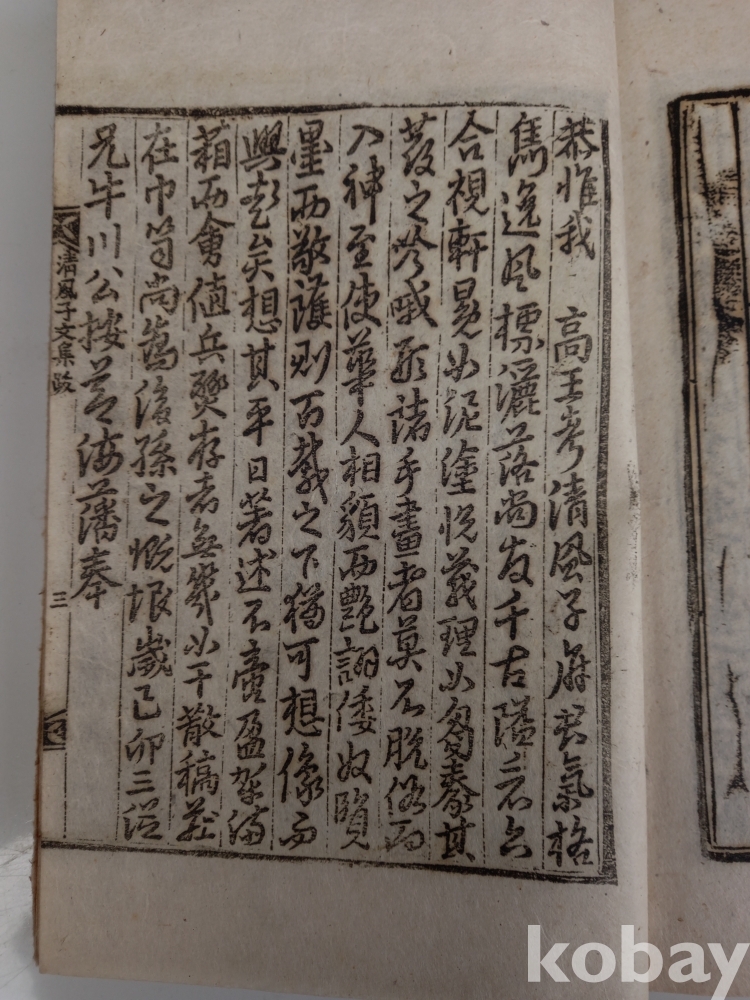 恭惟我 高王考清風子府君氣格
雋逸風標灑落尚友千古隘六
合視軒冕如泥塗悅義理如芻豢其
發之吟哦形諸手畫者莫不脫俗而
入神至使華人相顧而艶詡倭奴賢
墨而敬護則百載之下猶可想像而
興起矣想其平日著述不啻盈架滿
箱而會値兵燹存者無幾如干散稿莊
在巾笥尚為後孫之慨恨歲己卯三從
兄牛川公按 海藩奉
清風子文集跋
三
kobay